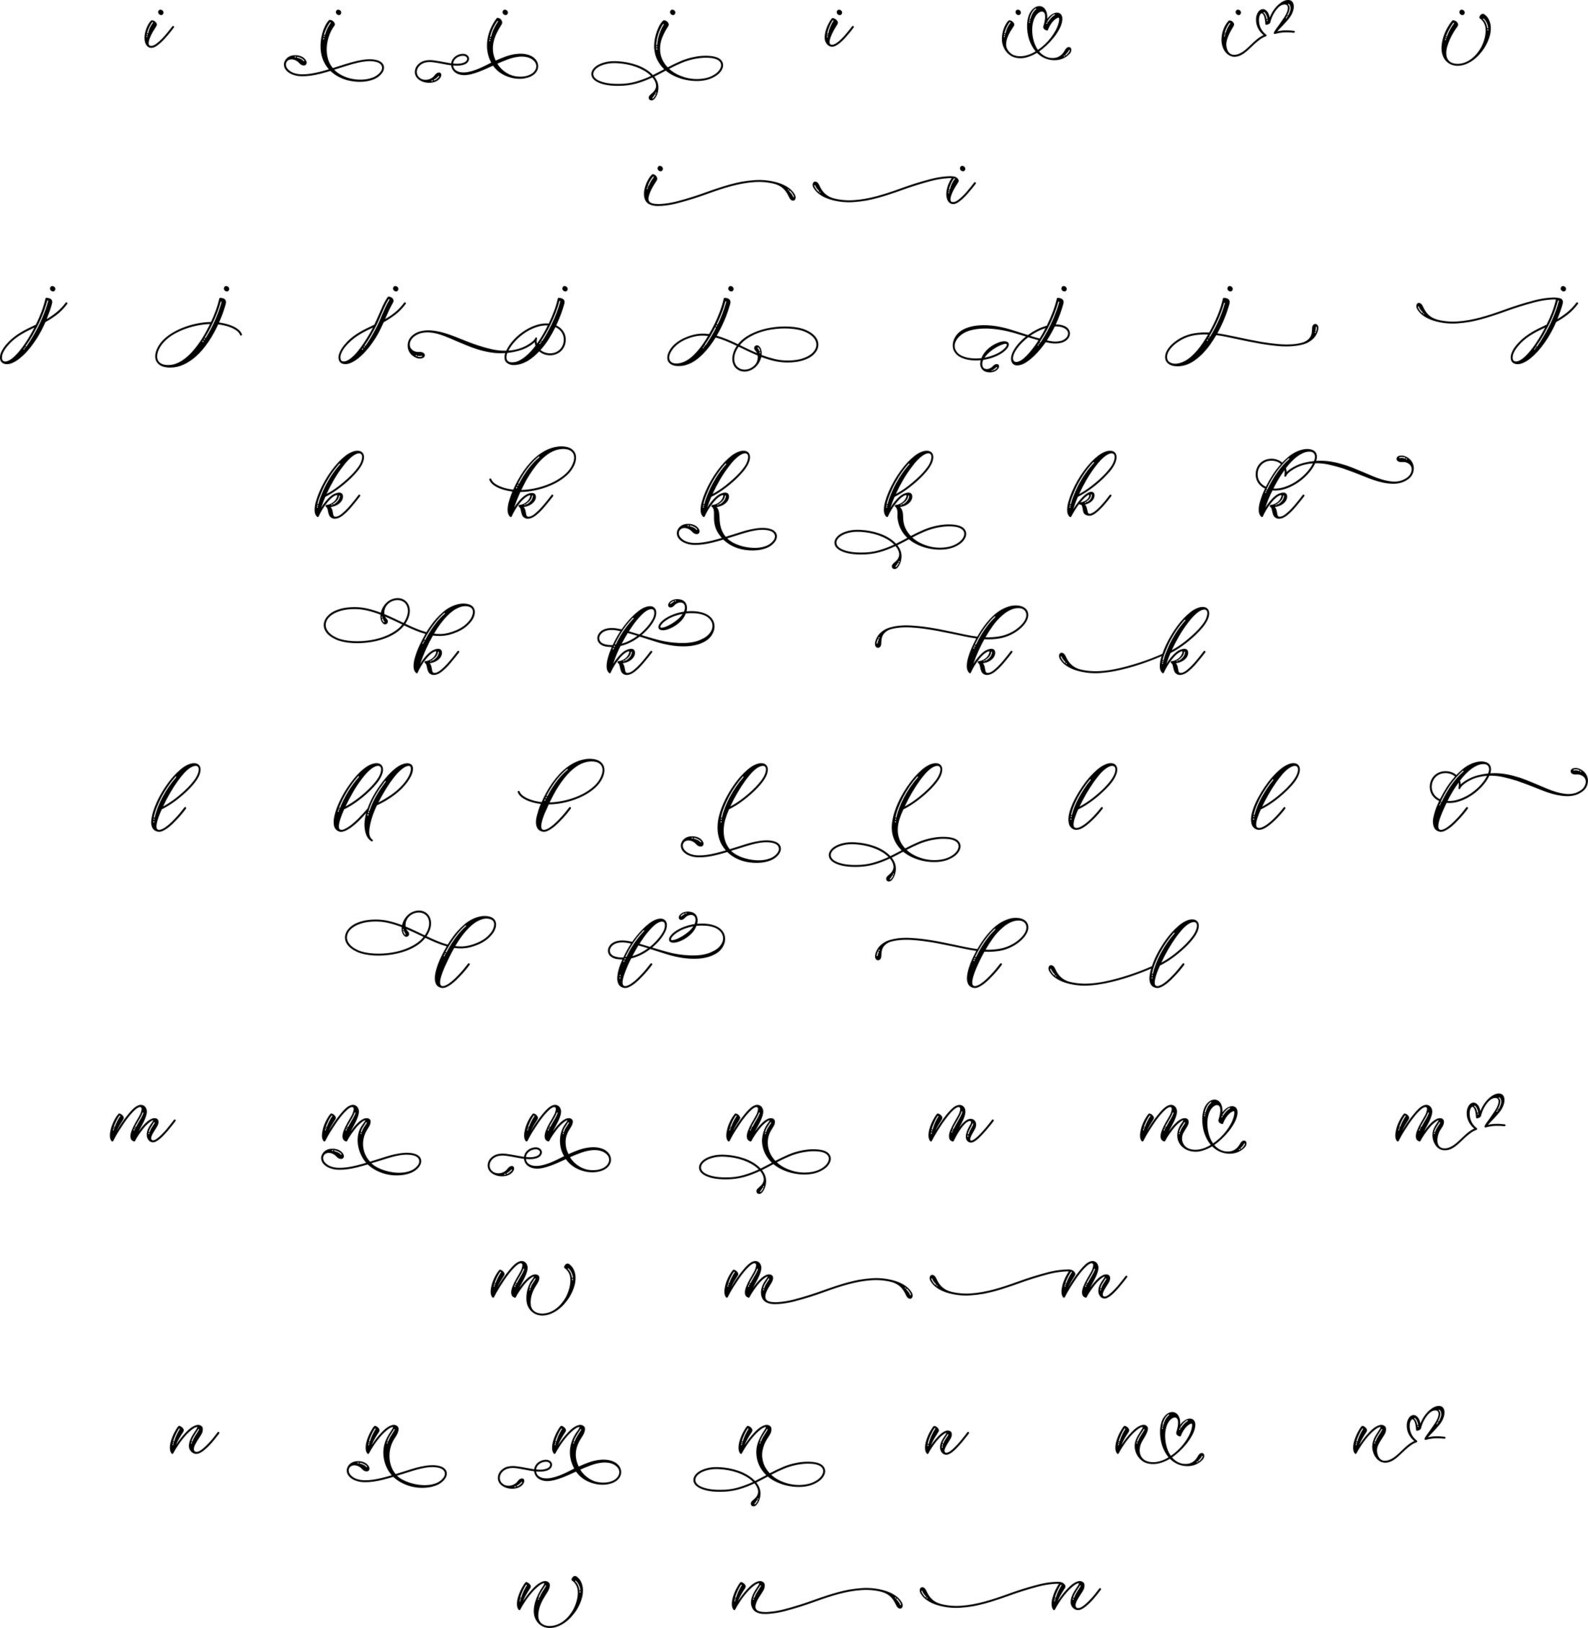 i i i i i i i i
i i
j j j j j j j j
k k k k k k
k k k k
l ll l l l l l l
l l l l
m m m m m m m
m m m
n n n n n n n
n n n